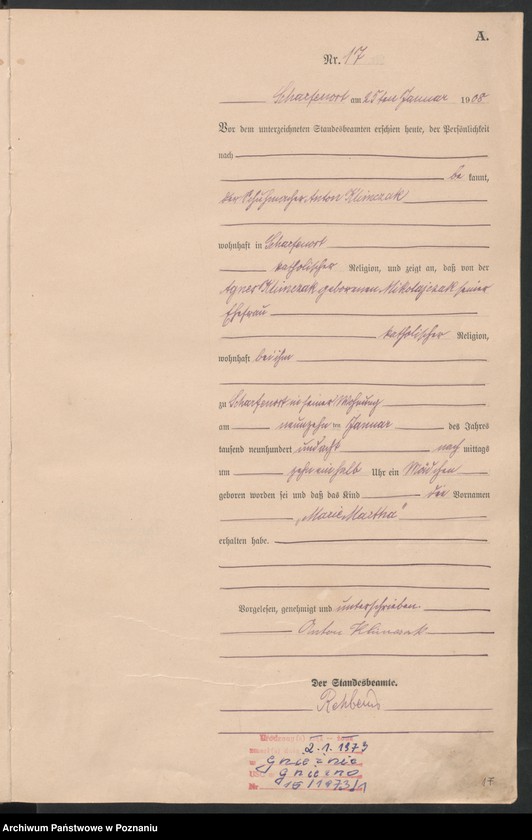 A.
Nr. 17
Scharfenort am 25ten Januar 1908
Vor dem unterzeichneten Standesbeamten erschien heute, der Persönlichkeit
nach
be kannt,
der Schuhmacher Anton Klimczak
wohnhaft in Scharfenort
katholischer Religion, und zeigt an, daß von der
Agnes Klimczak geborenen Mikolajczak seiner
Ehefrau
katholischer Religion,
wohnhaft bei ihm
zu Scharfenort in seiner Wohnung
am neunzehn ten Januar des Jahres
tausend neunhundert und acht nach mittags
um zehn ein halb Uhr ein Mädchen
geboren worden sei und daß das Kind die Vornamen
„Marie Martha"
erhalten habe.
Vorgelesen, genehmigt und unterschrieben
Anton Klimczak
Der Standesbeamte.
2.1.1973
w Gnieźnie
Gniezno
Nr 15/1973/1
17
Archiwum Państwowe w Poznaniu